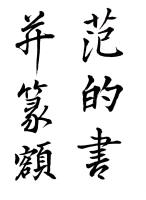 范的書
并篆額